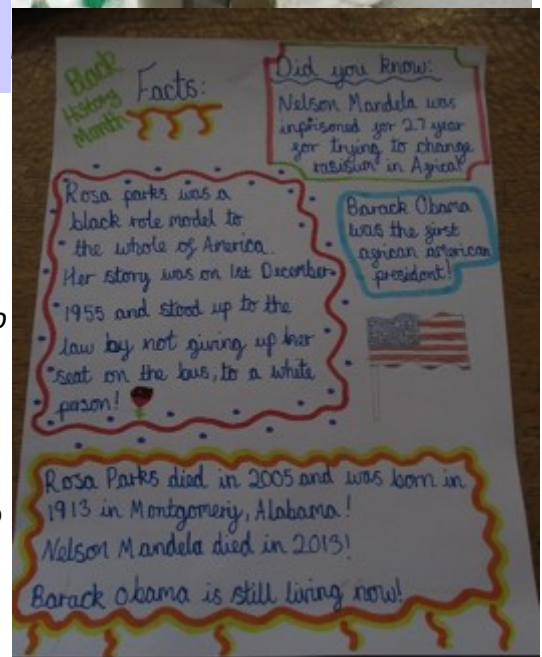 Black
History
Month
Facts:
Did you know:
Nelson Mandela was
inprisoned for 27 year
for trying to change
rasisum in Africa!
Rosa parks was a
black role model to
the whole of America.
Her story was on 1st December
1955 and stood up to the
law by not giving up her
seat on the bus, to a white
person!
Barack Obama
was the first
african american
president!
Rosa Parks died in 2005 and was born in
1913 in Montgomery, Alabama!
Nelson Mandela died in 2013!
Barack obama is still living now!